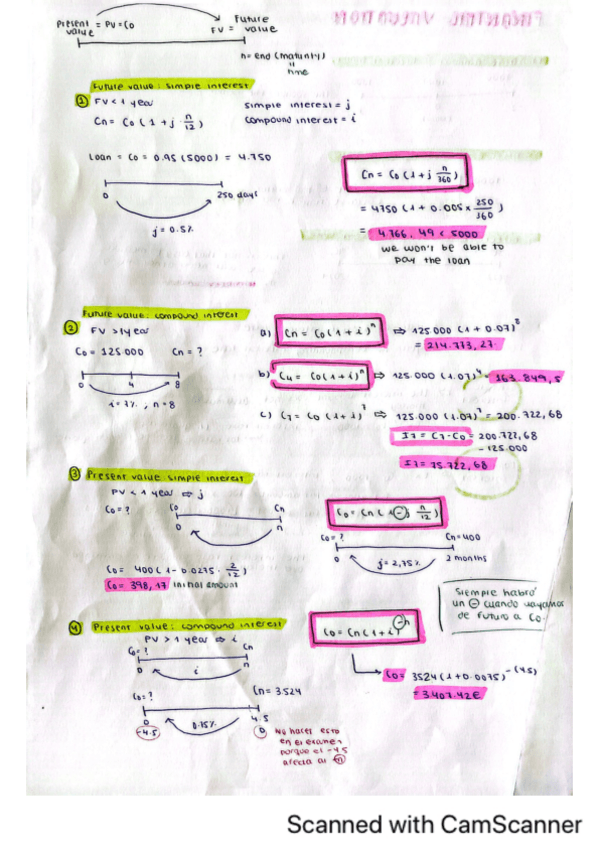 Present value = PV = C0
Future value
FV =
n = end (maturity)
"
time
Future value: simple interest
① FV < 1 year
simple interest = j
Cn = C0 (1 + j n/12)
compound interest = i
Loan = C0 = 0.95 (5000) = 4.750
Cn = C0 (1 + j n/360)
0 250 days
j = 0.5%
= 4750 (1 + 0.005 x 250/360)
= 4.766,49 < 5000
we won't be able to
pay the loan
Future value: compound interest
② FV > 1 year
C0 = 125.000 Cn = ?
0 4 8
i = 7%, n = 8
a) Cn = C0 (1 + i)^n ⇒ 125.000 (1 + 0.07)^8
= 214.773,27
b) C4 = C0 (1 + i)^n ⇒ 125.000 (1.07)^4 = 163.849,5
c) C7 = C0 (1 + i)^7 ⇒ 125.000 (1.07)^7 = 200.722,68
I7 = C7 - C0 = 200.722,68
- 125.000
I7 = 75.722,68
③ Present value: simple interest
PV < 1 year ⇒ j
C0 = ?
C0 Cn
0 n
C0 = Cn (1 - j n/12)
C0 = ? Cn = 400
0 2 months
j = 2,75%
C0 = 400 (1 - 0.0275 · 2/12)
C0 = 398,17 initial amount
Siempre habrá
un ⊖ cuando vayamos
de futuro a C0.
④ Present value: compound interest
PV > 1 year ⇒ i
C0 = ? Cn
0 n
i
C0 = Cn (1 + i)^-n
C0 = 3524 (1 + 0.0075)^-(4.5)
= 3.407.42€
C0 = ? Cn = 3.524
0 4.5
0.75%
-4.5 0
No hacer esto
en el examen
porque el -4.5
afecta al n
Scanned with CamScanner